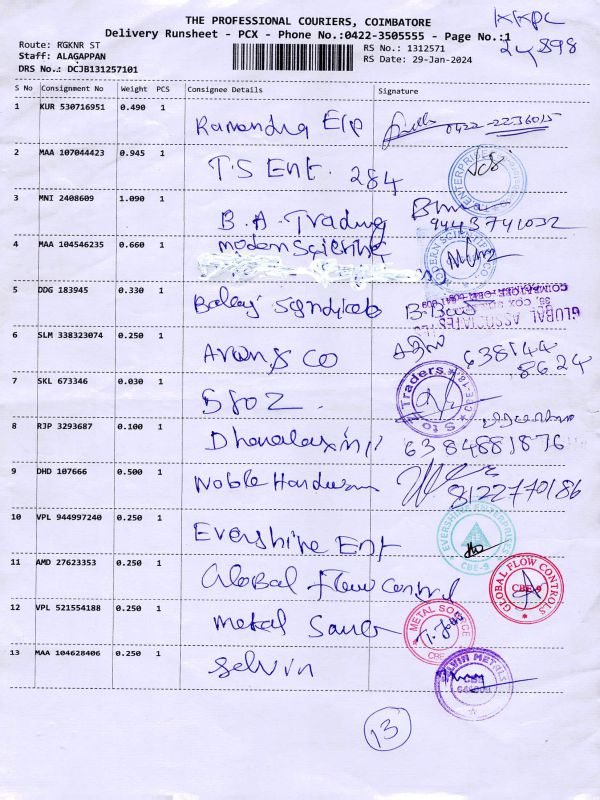 THE PROFESSIONAL COURIERS, COIMBATORE
Delivery Runsheet - PCX - Phone No.:0422-3505555 - Page No.:1
KKPC
24898
Route: RGKNR ST
RS No.: 1312571
Staff: ALAGAPPAN
RS Date: 29-Jan-2024
DRS No.: DCJB131257101
S No Consignment No Weight PCS Consignee Details Signature
1 KUR 530716951 0.490 1 Ramandra E/p 0422-2236015
2 MAA 107044423 0.945 1 T.S Ent. 284
ENTERPRISES
3 MNI 2408609 1.090 1 B.A. Trading
9443741032
4 MAA 104546235 0.660 1 modern Scientific
5 DDG 183945 0.330 1 Balaji Syndicate
GLOBAL ASSOCIATES
6 SLM 338323074 0.250 1 Arun & CO 638144
8624
7 SKL 673346 0.030 1 Stoz
S to Z Traders CBE-18
8 RJP 3293687 0.100 1 Dhanalaxmi 6384881876
9 DHD 107666 0.500 1 Noble Hardware 8122770186
10 VPL 944997240 0.250 1 Evershine Ent
EVERSHINE ENTERPRISES CBE-9
11 AMD 27623353 0.250 1 Global Flow Control
GLOBAL FLOW CONTROLS CBE-9
12 VPL 521554188 0.250 1 Metal Source
METAL SOURCE CBE
13 MAA 104628406 0.250 1 Selvin
SELVIN METALS CBE
13